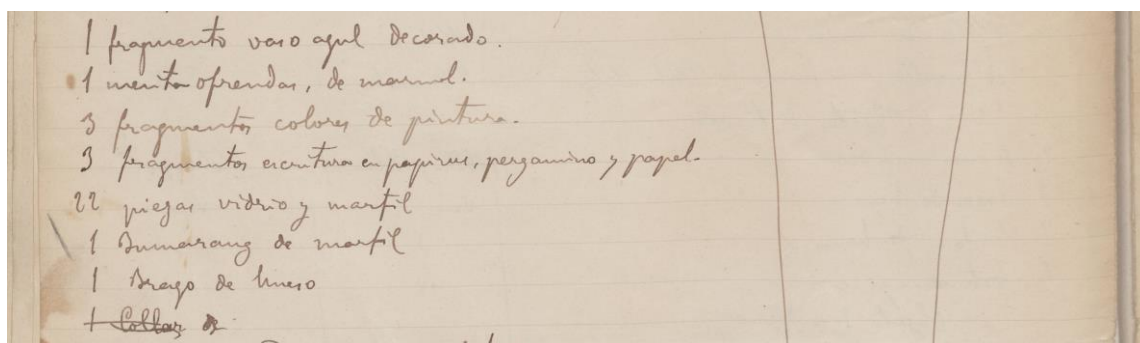 1 fragmento vaso azul decorado.
1 mesita ofrendas, de marmol.
3 fragmentos colores de pintura.
3 fragmentos escritura en papirus, pergamino y papel.
22 piezas vidrio y marfil
1 Bumarang de marfil
1 Brazo de hueso
1 Collar de